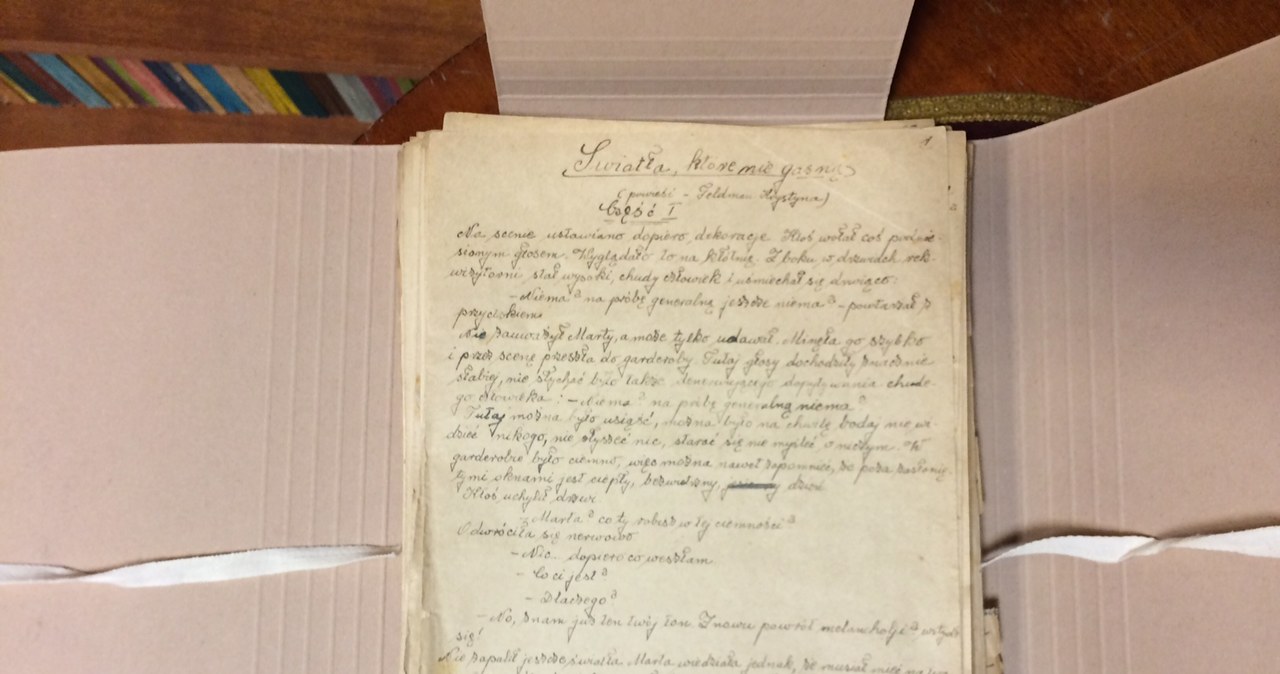 1
Światła, które nie gasną
(powieść - Feldman Krystyna)
Część I
Na scenie ustawiano dopiero dekoracje. Ktoś wołał coś podnie-
sionym głosem. Wyglądało to na kłótnię. Z boku w drzwiach rek-
wizytorni, stał wysoki, chudy człowiek i uśmiechał się drwiąco.
- Niema? na próbę generalną jeszcze niema? - powtarzał z
przydechem
Nie zauważył Marty, a może tylko udawał. Minęła go szybko
i przez scenę przeszła do garderoby. Tutaj głosy dochodziły znacznie
słabiej, nie słychać było także denerwującego dopytywania chude-
go człowieka: - Niema? na próbę generalną niema?
Tutaj można było usiąść, można było na chwilę bodaj nie wi
dzieć nikogo, nie słyszeć nic, starać się nie myśleć o niczym. W
garderobie było ciemno, więc można nawet zapomnieć, że poza zasłonię
tymi oknami jest ciepły, bezwietrzny, dzień
Ktoś uchylił drzwi
- Marta? co ty robisz w tej ciemności?
Odwróciła się nerwowo
- Nic... dopiero co weszłam.
- Co ci jest?
- Dlaczego?
- No, znam już ten twój ton. Znowu powrót melancholji?
się!
Nie zapalił jeszcze światła. Marta wiedziała jednak, że musiał mieć